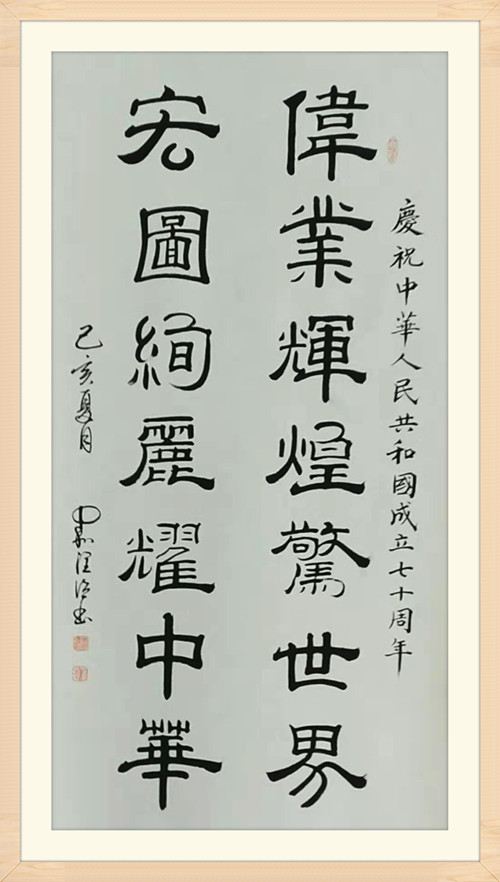 慶祝中華人民共和國成立七十周年
偉業輝煌驚世界
宏圖絢麗耀中華
己亥夏月